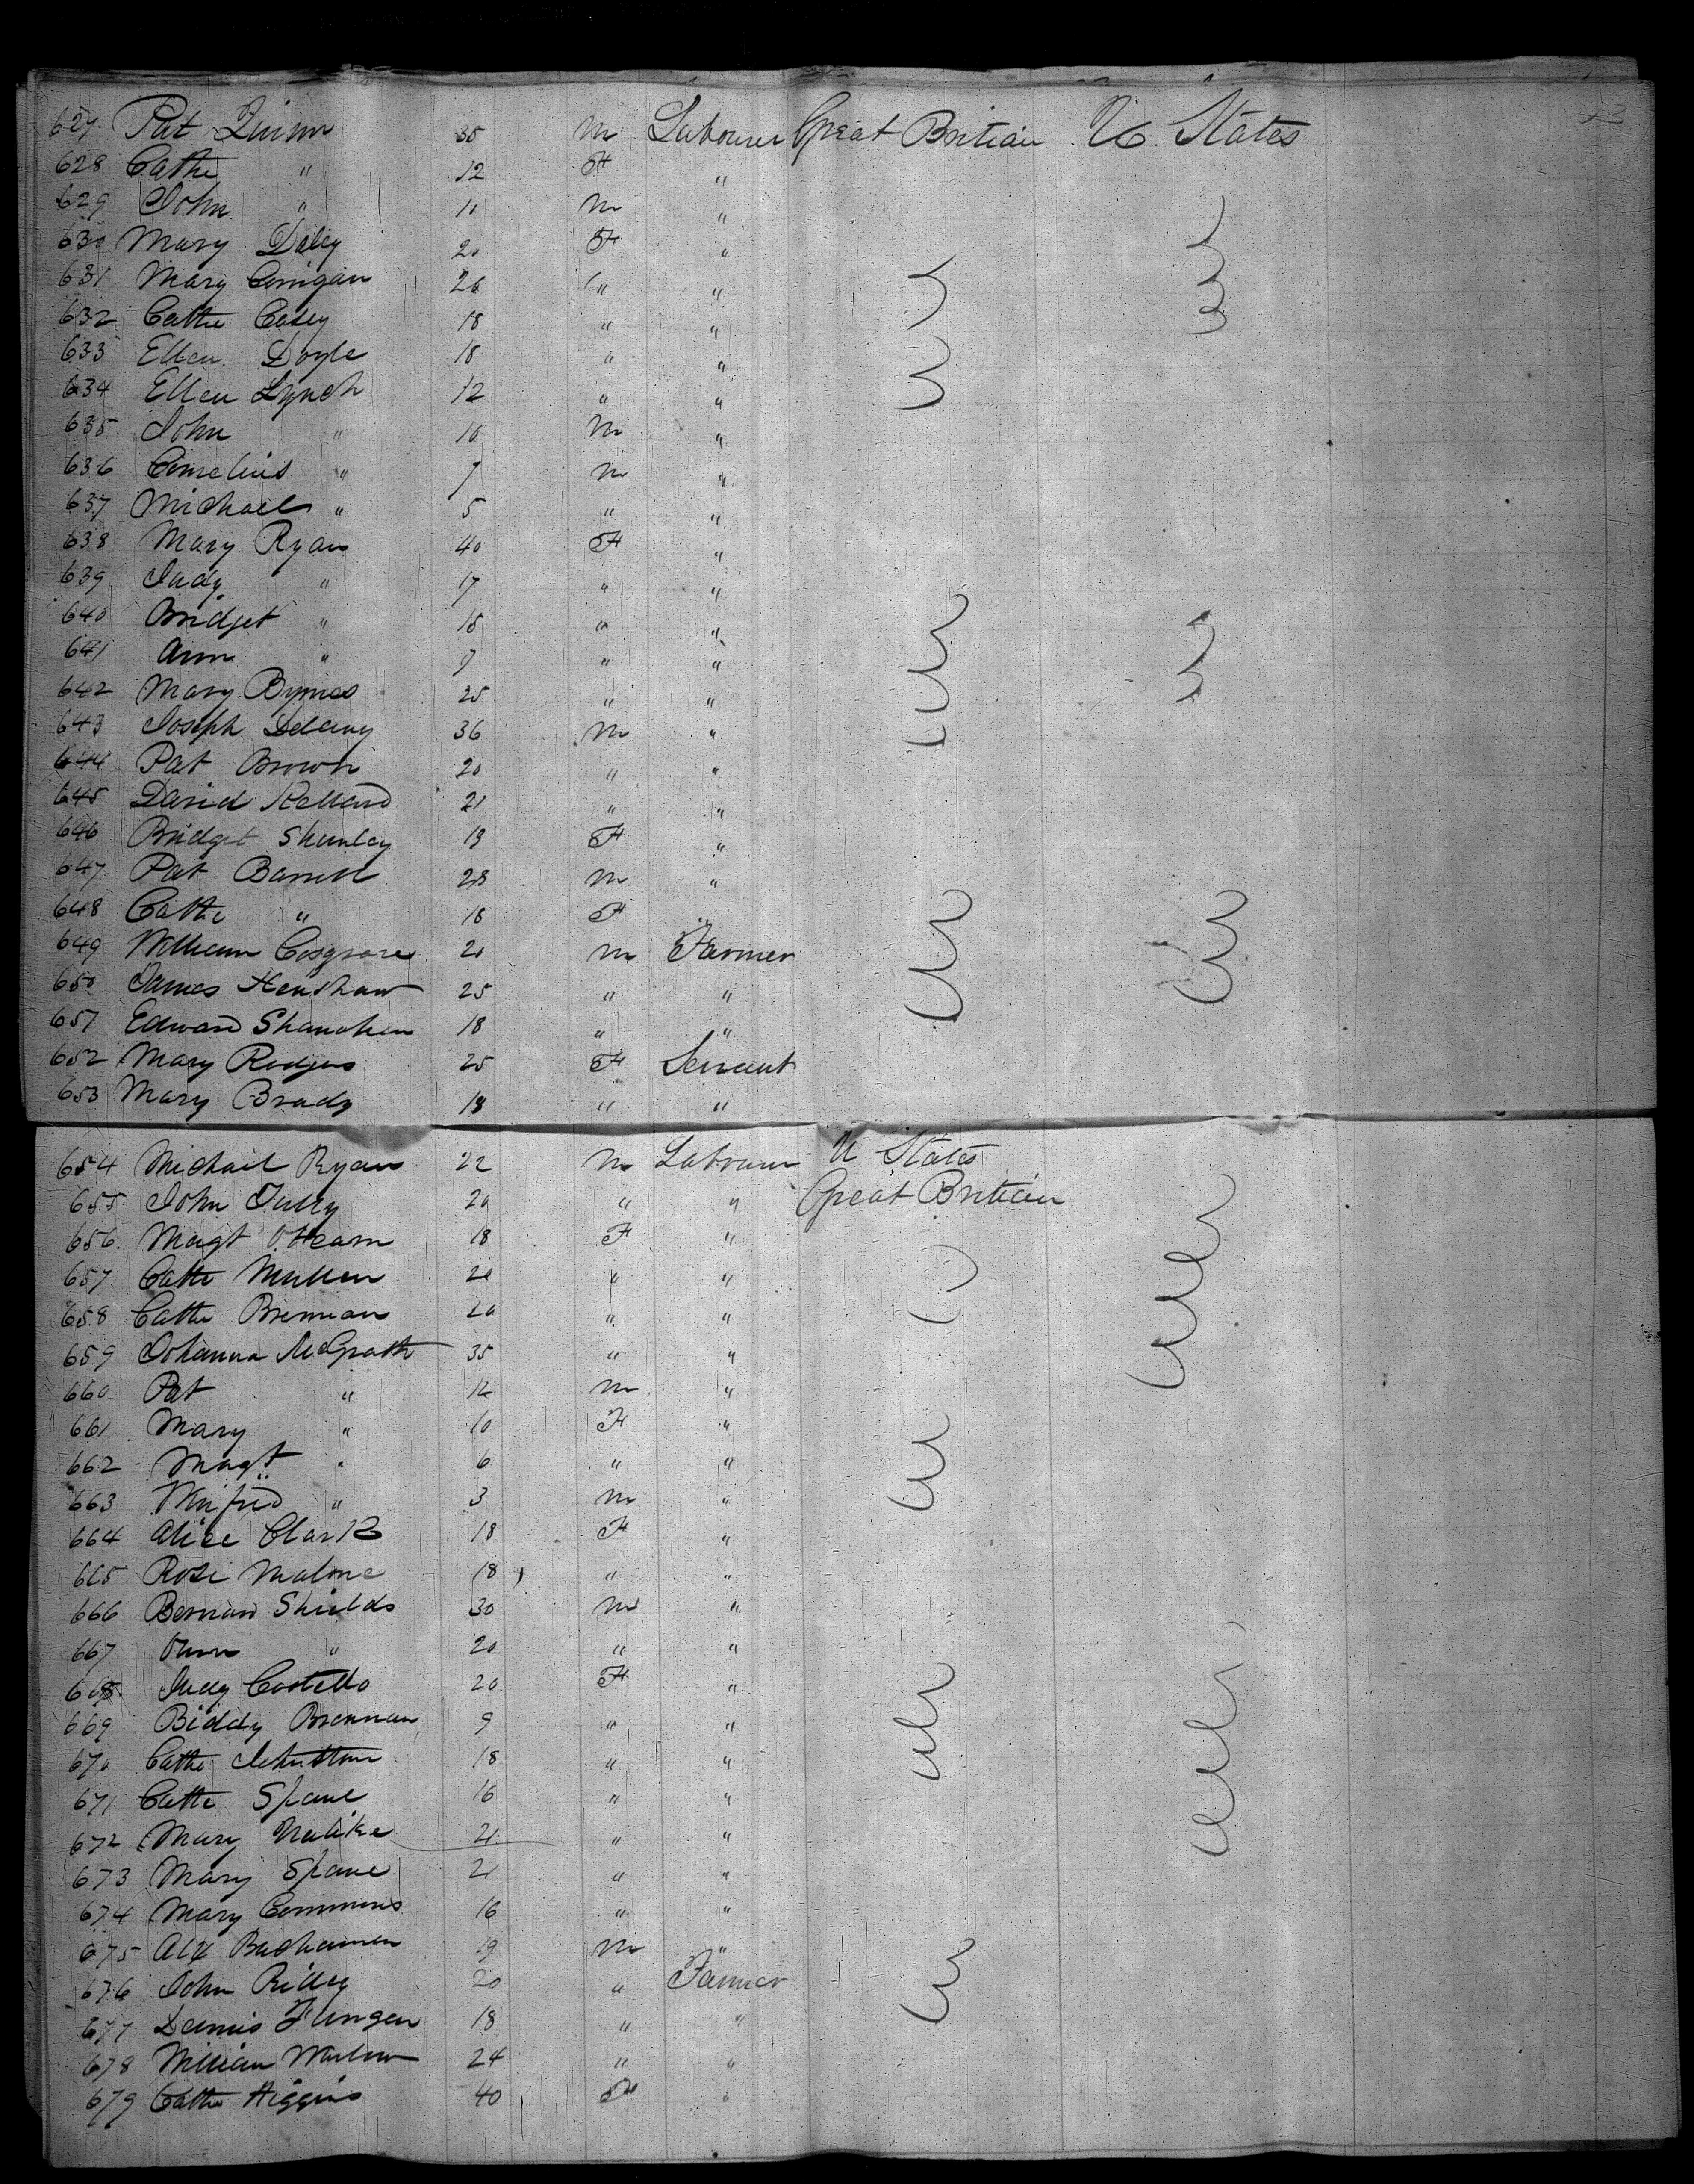 627 Pat Quinn 35 m Labourer Great Britian U States
628 Cathe " 12 F "
629 John " 11 m "
630 Mary Daley 20 F "
631 Mary Corrigan 26 " "
632 Cathe Casey 18 " "
633 Ellen Doyle 18 " "
634 Ellen Lynch 12 " "
635 John " 10 m "
636 Cornelius " 7 m "
637 Michael " 5 " "
638 Mary Ryan 40 F "
639 Judy " 17 " "
640 Bridget " 15 " "
641 Ann " 9 " "
642 Mary Byrnes 25 " "
643 Joseph Delany 36 m "
644 Pat Brown 20 " "
645 David 21 " "
646 Bridget Shanley 19 F "
647 Pat Barrett 28 m "
648 Cathe " 18 F "
649 William Cosgrove 20 m Farmer
650 James Henshaw 25 " "
651 Edward Shanahan 18 " "
652 Mary Rodgers 25 F Servant
653 Mary Brady 18 " "
654 Michael Ryan 22 m Labourer U States
655 John Tully 20 " " Great Britian
656 Magt O'Hearn 18 F "
657 Cathe Mullen 20 " "
658 Cathe Brennan 20 " "
659 Johanna McGrath 35 " "
660 Pat " 12 m "
661 Mary " 10 F "
662 Magt " 6 " "
663 Winfred " 3 m "
664 Alice Clark 18 F "
665 Rose Malone 18 " "
666 Bernard Shields 30 m "
667 Owen " 20 " "
668 Judy Costello 20 F "
669 Biddy Brennan 9 " "
670 Cathe Johnston 18 " "
671 Cathe Spane 16 " "
672 Mary 21 " "
673 Mary Spane 21 " "
674 Mary Commons 16 " "
675 Alx Buchannen 19 m "
676 John Rilley 20 " Farmer
677 Dennis 18 " "
678 William 24 " "
679 Cathe Higgins 40 F "